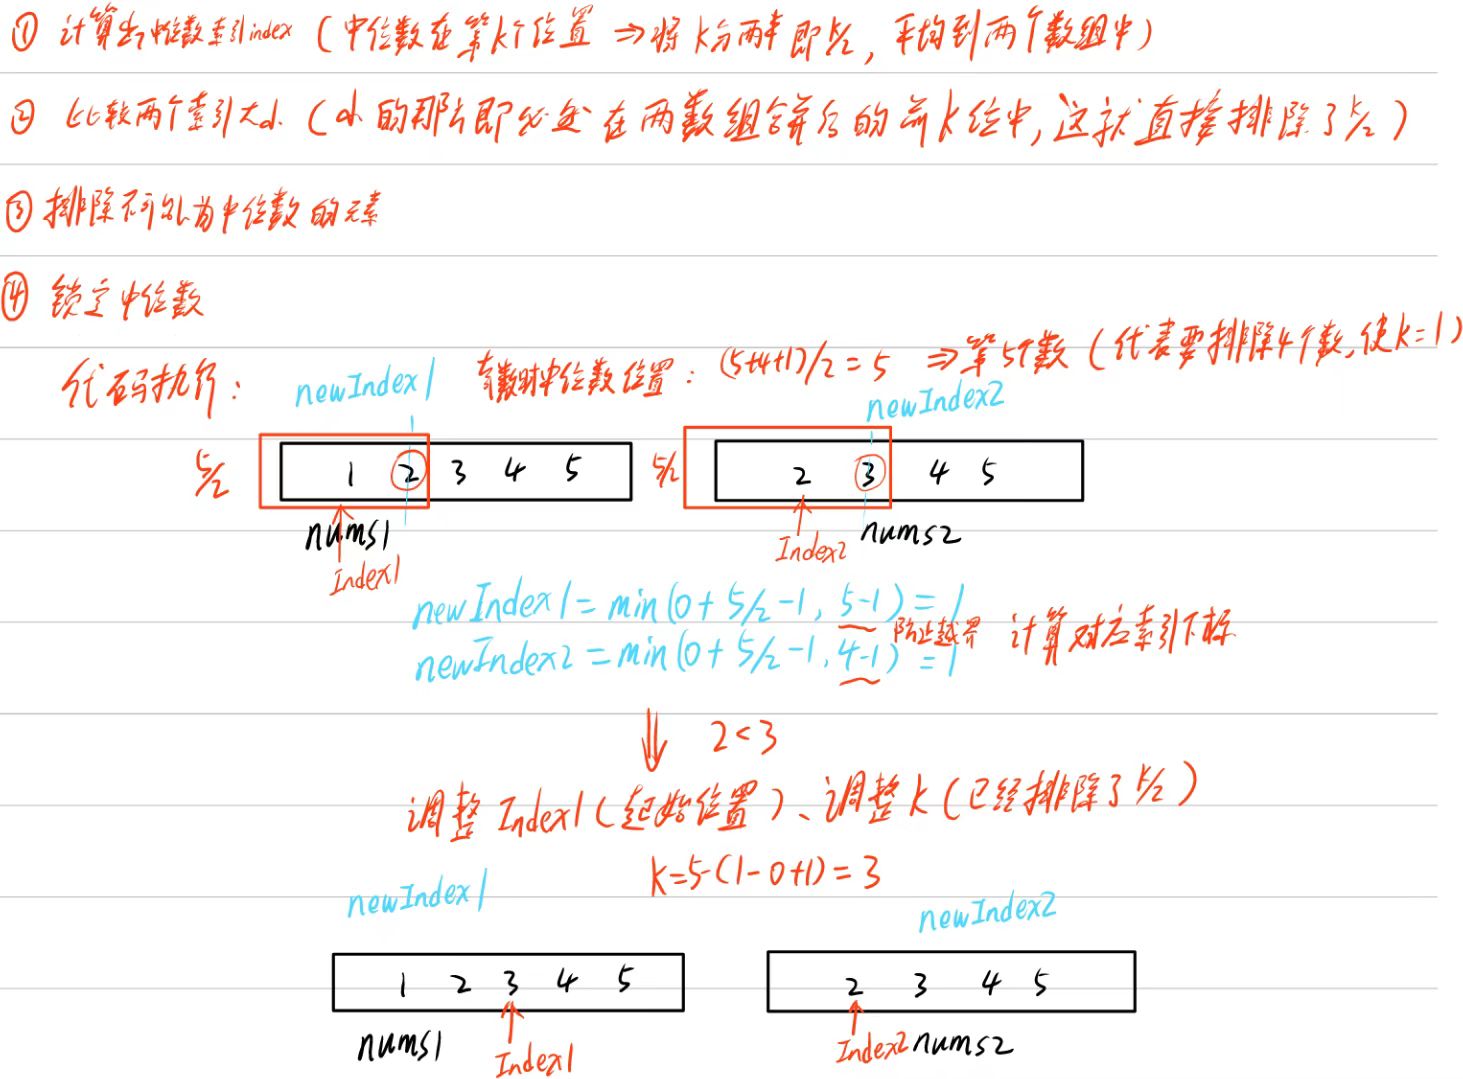 ① 计算出中位数索引index（中位数在第k个位置 ⇒将k分两半即k/2，平均到两个数组中）
② 比较两个索引大小（小的那片即必定在两数组合并后的前k位中，这就直接排除了k/2）
③ 排除不可能为中位数的元素
④ 锁定中位数
代码执行：
奇数时中位数位置：(5+4+1)/2=5 ⇒第5个数（代表要排除4个数，使k=1）
newIndex1 newIndex2
5/2 1 2 3 4 5 5/2 2 3 4 5
nums1 nums2
Index1 Index2
newIndex1=min(0+5/2-1, 5-1)=1
newIndex2=min(0+5/2-1, 4-1)=1
防止越界 计算对应索引下标
⇓ 2<3
调整Index1（起始位置）、调整k（已经排除了k/2）
k=5-(1-0+1)=3
newIndex1 newIndex2
1 2 3 4 5 2 3 4 5
nums1 Index1 Index2 nums2